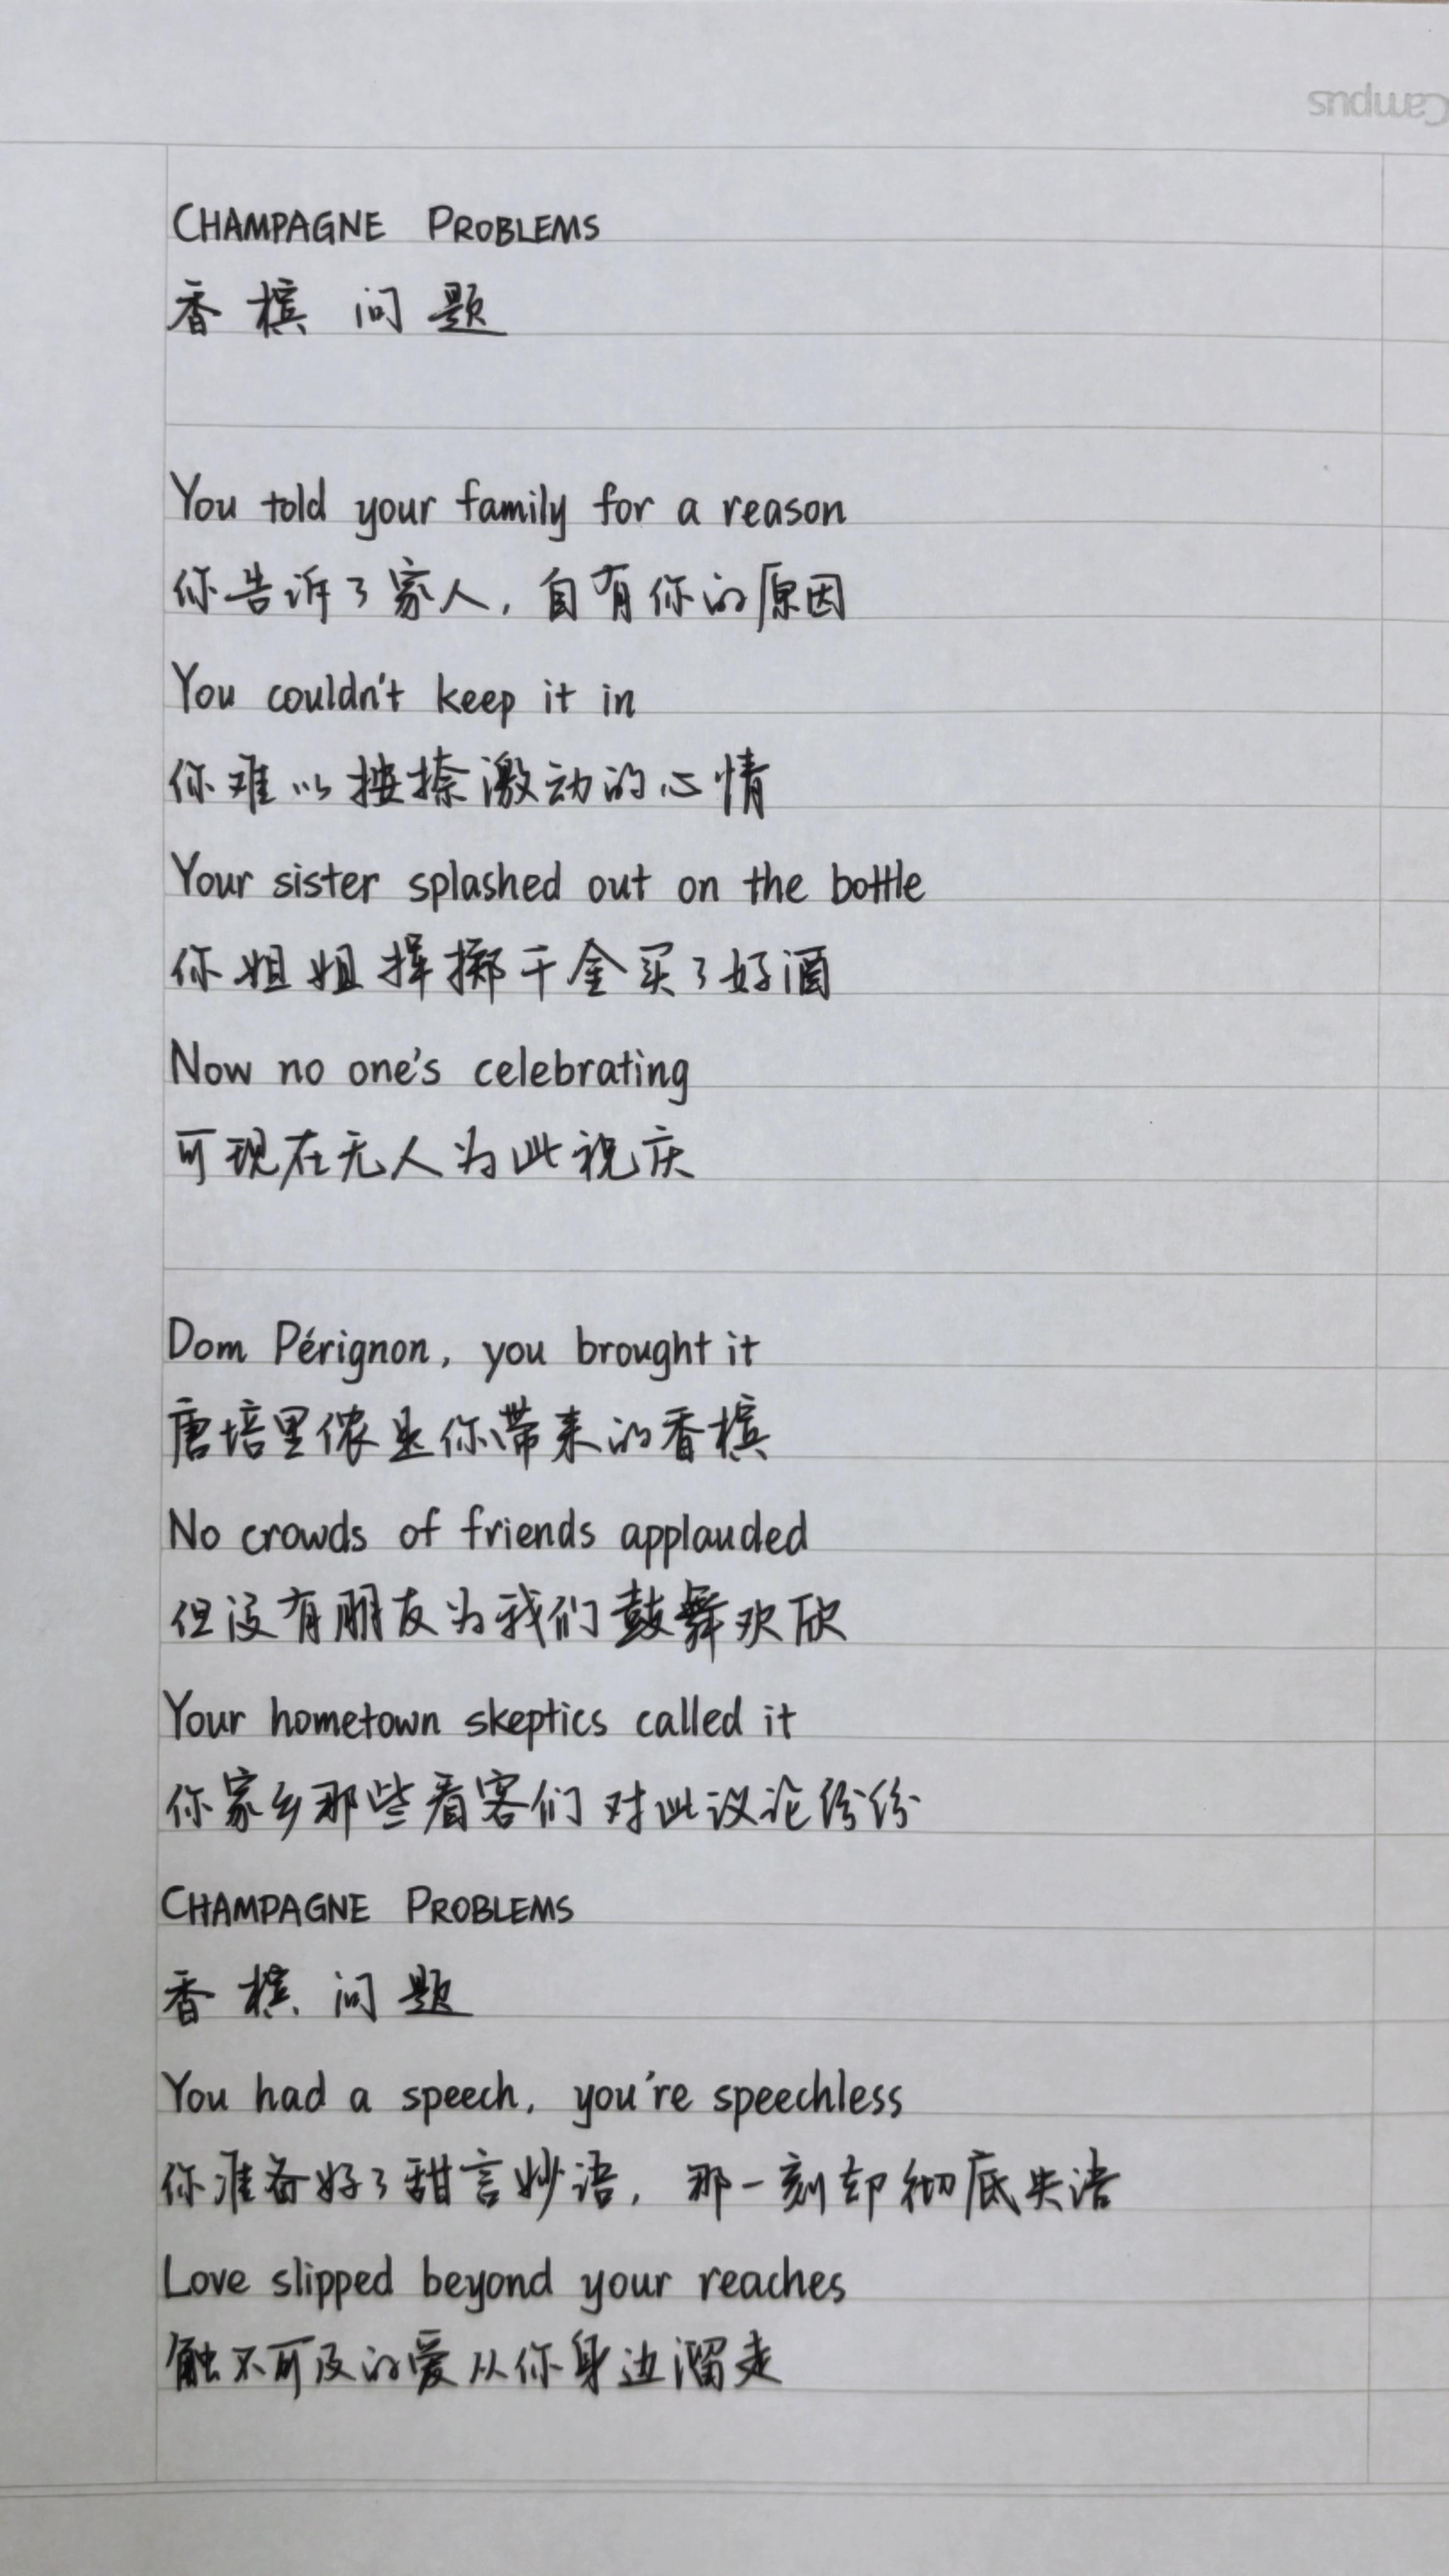 Campus
CHAMPAGNE PROBLEMS
香槟问题
You told your family for a reason
你告诉了家人，自有你的原因
You couldn't keep it in
你难以按捺激动的心情
Your sister splashed out on the bottle
你姐姐挥掷千金买了好酒
Now no one's celebrating
可现在无人为此祝庆
Dom Pérignon, you brought it
唐培里侬是你带来的香槟
No crowds of friends applauded
但没有朋友为我们鼓舞欢欣
Your hometown skeptics called it
你家乡那些看客们对此议论纷纷
CHAMPAGNE PROBLEMS
香槟问题
You had a speech, you're speechless
你准备好了甜言妙语，那一刻却彻底失语
Love slipped beyond your reaches
触不可及的爱从你身边溜走